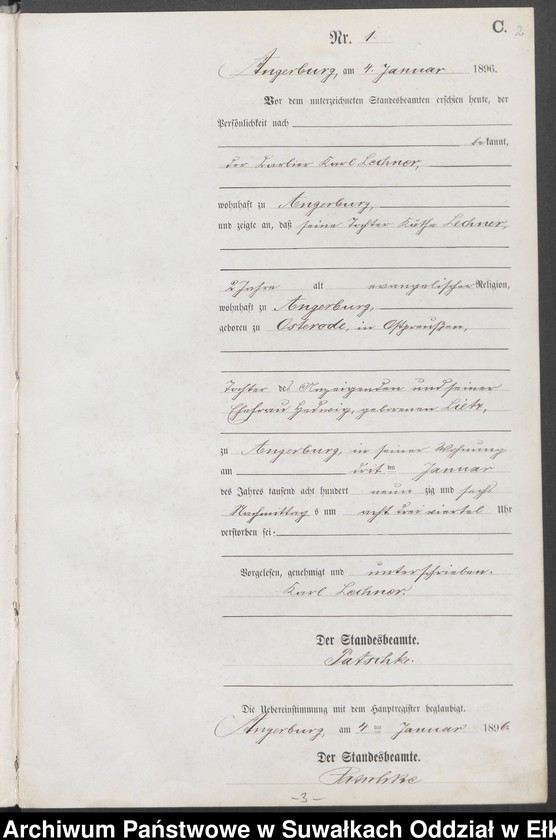 C.
2
Nr. 1.
Angerburg, am 4. Januar 1896.
Vor dem unterzeichneten Standesbeamten erschien heute, der
Persönlichkeit nach
bekannt,
der Barbier Karl Lechner,
wohnhaft zu Angerburg,
und zeigte an, daß seine Tochter Käthe Lechner,
2 Jahre alt evangelischer Religion,
wohnhaft zu Angerburg,
geboren zu Osterode, in Ostpreußen,
Tochter des Anzeigenden und seiner
Ehefrau Hedwig, geborenen Lietz,
zu Angerburg, in seiner Wohnung
am dritten Januar
des Jahres tausend acht hundert neun zig und sechs
Nachmittags um acht drei viertel Uhr
verstorben sei.
Vorgelesen, genehmigt und unterschrieben.
Karl Lechner.
Der Standesbeamte.
Die Uebereinstimmung mit dem Hauptregister beglaubigt.
Angerburg, am 4ten Januar 1896
Der Standesbeamte.
-3-
Archiwum Państwowe w Suwałkach Oddział w Ełk